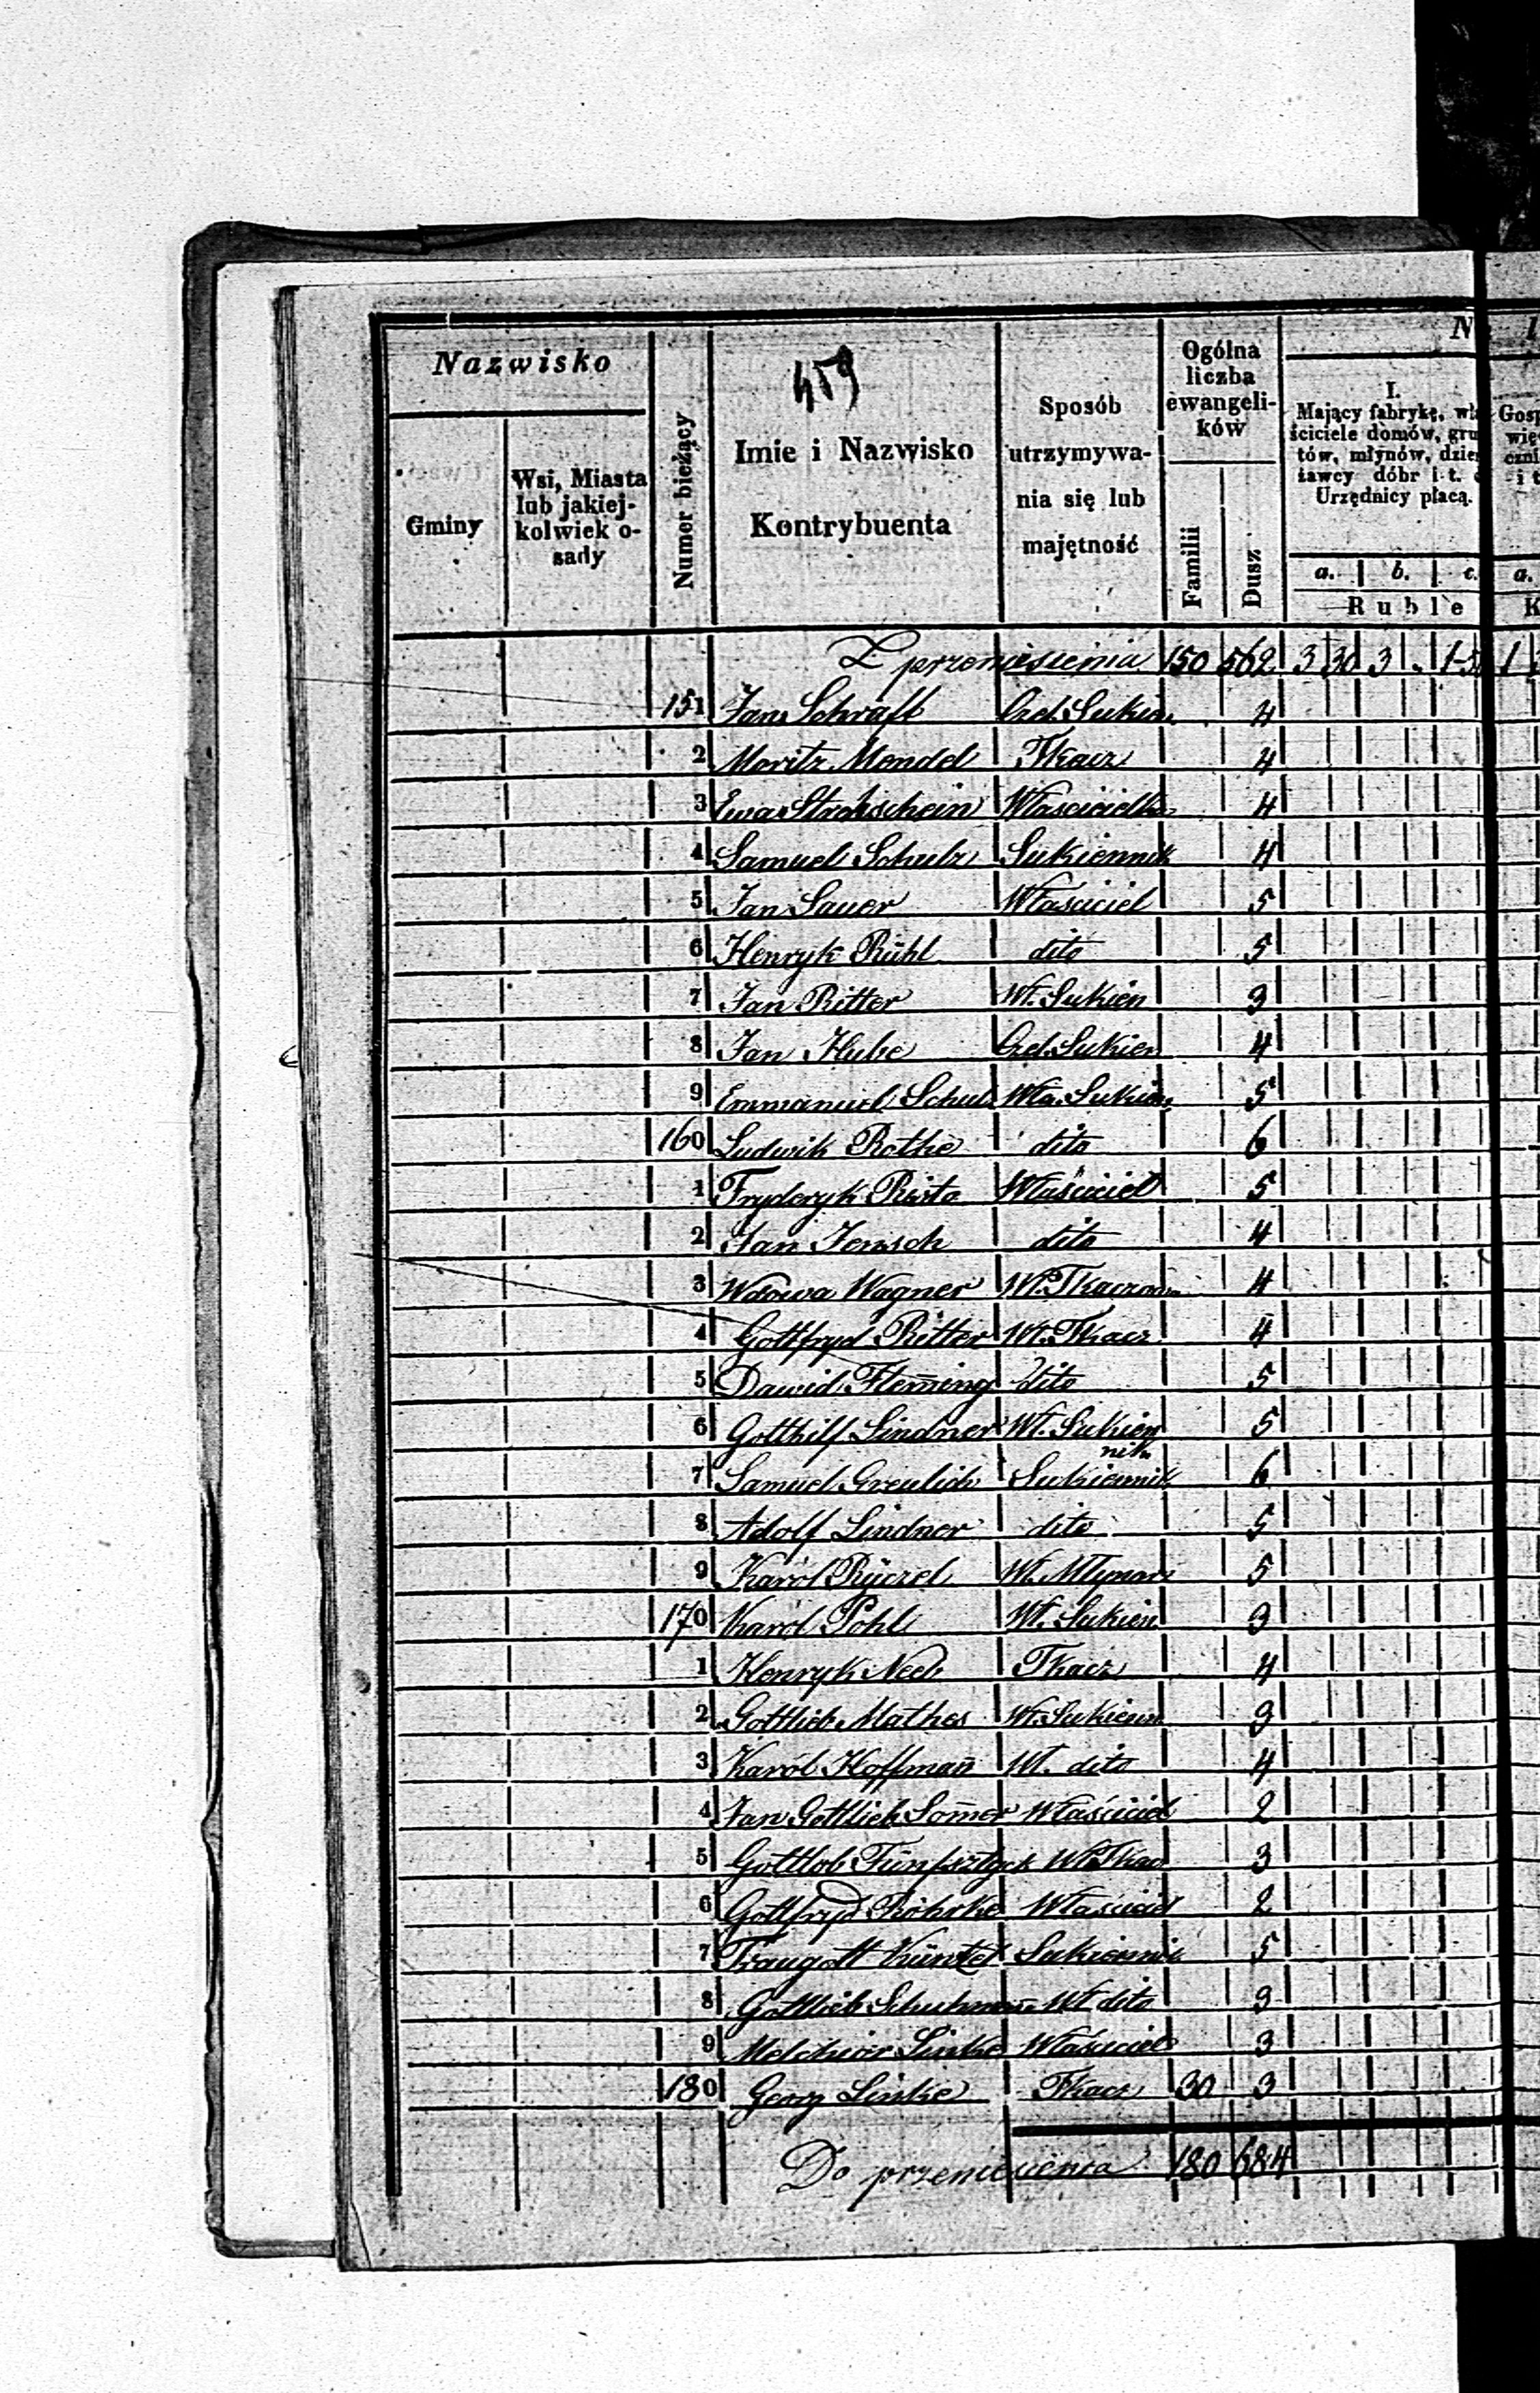 Nazwisko
Gminy
Wsi, Miasta
lub jakiej-
kolwiek o-
sady
Numer bieżący
459
Imie i Nazwisko
Kontrybuenta
Sposób
utrzymywa-
nia się lub
majętność
Ogólna
liczba
ewangeli-
ków
Familii
Dusz
N
I.
Mający fabrykę, wła
ściciele domów, gru
tów, młynów, dzier
żawcy dóbr i t. d
Urzędnicy płacą.
a. b. c.
Ruble
Z przeniesienia 150 562 3 30 3 . 1 5
151 Jan Schraft Czel. Sukien. 4
2 Moritz Mendel Tkacz 4
3 Ewa Strohschein Właścicielka 4
4 Samuel Schulz Sukiennik 4
5 Jan Sauer Właściciel 5
6 Henryk Rühl dito 5
7 Jan Ritter Wł. Sukien 3
8 Jan Hube Czel. Sukien 4
9 Emmanuel Schul Wła. Sukien. 5
160 Ludwik Rothe dito 6
1 Fryderyk Właściciel 5
2 Jan Jensch dito 4
3 Wdowa Wagner Wł. Tkaczow 4
4 Gottfryd Ritter Wł. Tkacz 4
5 Dawid Flem̄ing dito 5
6 Gotthilf Lindner Wł. Sukien 5
nik
7 Samuel Greulich Sukiennik 6
8 Adolf Lindner dito 5
9 Karól Wł. Młynarz 5
170 Karól Pohl Wł. Sukien 3
1 Henryk Neeb Tkacz 4
2 Gottlieb Mathes Wł. Sukienn 3
3 Karól Hoffman̄ Wł. dito 4
4 Jan Gottlieb Som̄er Właściciel 2
5 Gottlob Fünfsztyck Wł. Tkacz 3
6 Gottfryd Röhrke Właściciel 2
7 Traugott Künzel Sukiennik 5
8 Gottlieb Schuhman̄ Wł dito 3
9 Melchior Linke Właściciel 3
180 Georg Linke Tkacz 30 3
Do przeniesienia 180 684